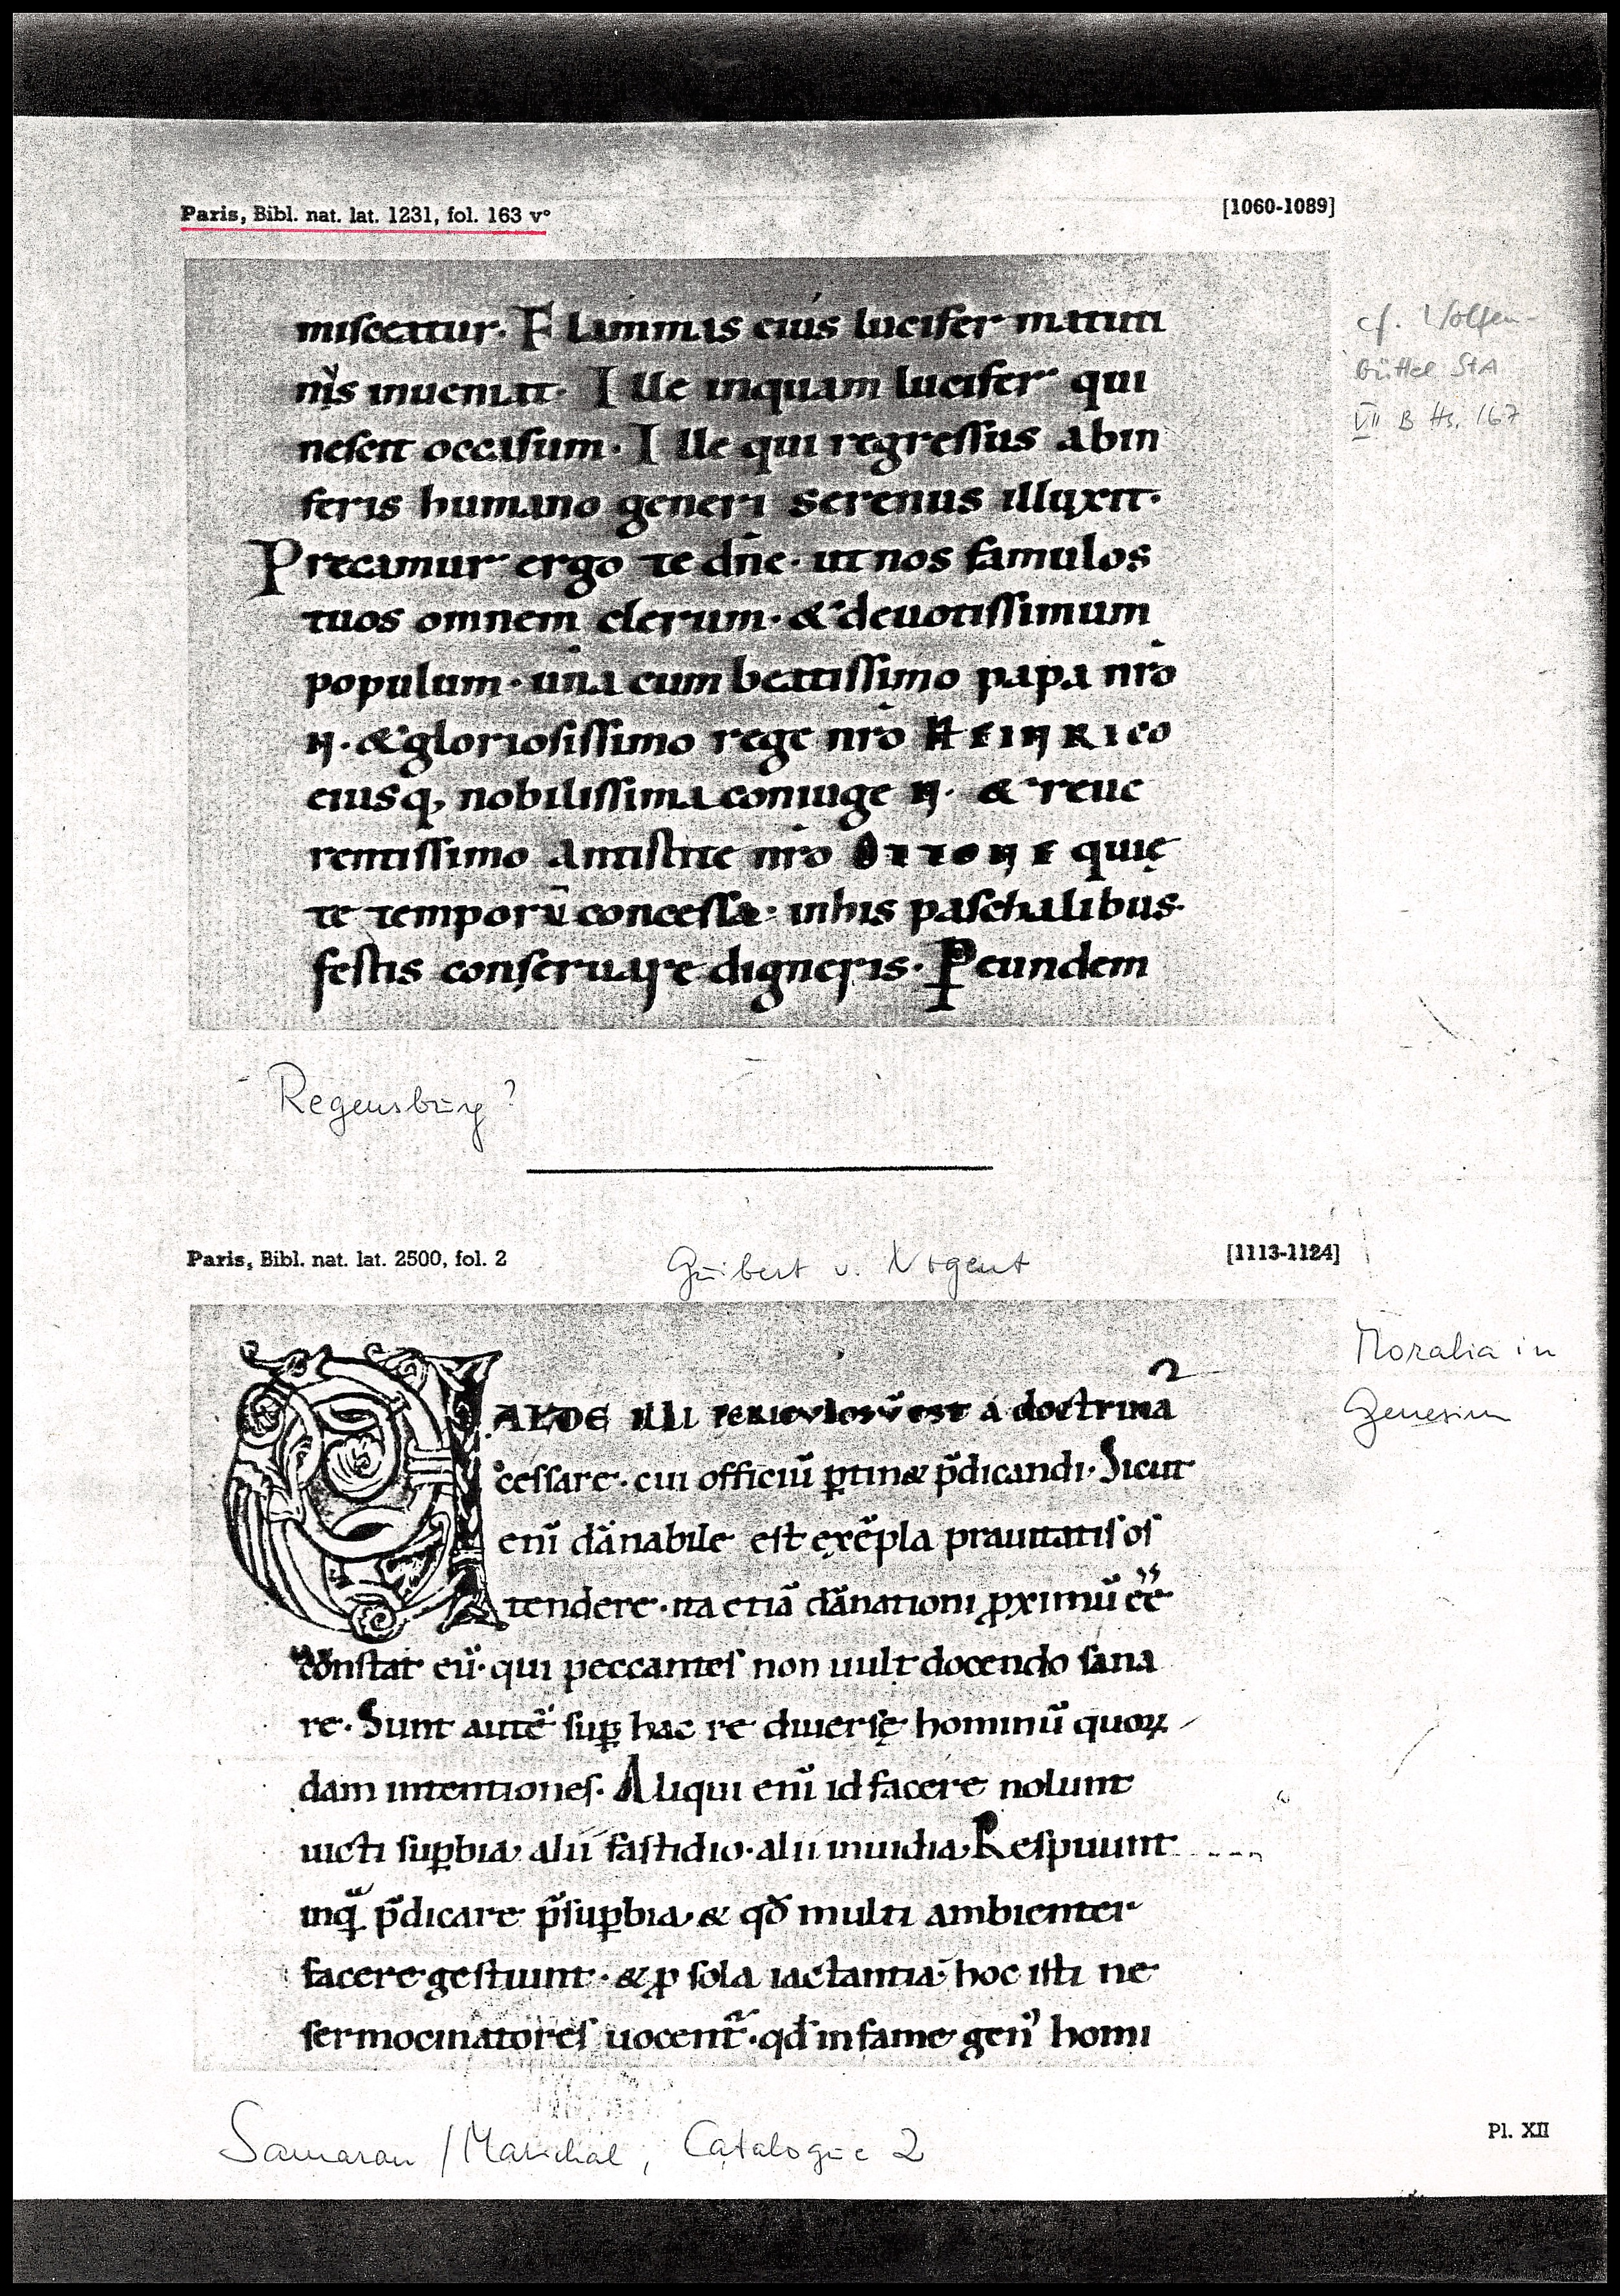 Paris, Bibl. nat. lat. 1231, fol. 163 v°
[1060-1089]
misceatur. Flammas eius lucifer matuti
nus inueniat. Ille inquam lucifer qui
nescit occasum. Ille qui regressus abin
feris humano generi serenus illuxit.
Precamur ergo te dn̄e. ut nos famulos
tuos omnem clerum. & deuotissimum
populum. una cum beatissimo papa nr̄o
N. & gloriosissimo rege nr̄o HEINRICO
eiusq, nobilissima coniuge N. & reue
rentissimo antistite nr̄o OTTONE quię
te temporū concessa. inhis paschalibus.
festis conseruare digneris. Ꝑeundem
cf. Wolfen-
büttel StA
VII B Hs. 167
Regensburg?
Paris, Bibl. nat. lat. 2500, fol. 2
Guibert v. Nogent
[1113-1124]
2
VALDE illi periculosū est á doctrina
cessare. cui officiū ꝑtin& p̄dicandi. Sicut
enī dānabile est exēpla prauitatis os
tendere. ita etiā dānationi ꝓximū eē
constat eū. qui peccantes non uult docendo sana
re. Sunt autē suꝑ hac re diuersę hominū quoꝝ
dam intentiones. Aliqui enī id facere nolunt
uicti suꝑbia. alii fastidio. alii inuidia. Respuunt
inq̄ p̄dicare p̄ suꝑbia. & qđ multi ambienter
facere gestiunt. & ꝓ sola iactantia. hoc isti ne
sermocinatores uocent̄. qđ infame gen' homi
Moralia in
Genesim
Samaran / Marichal, Catalogue 2
Pl. XII